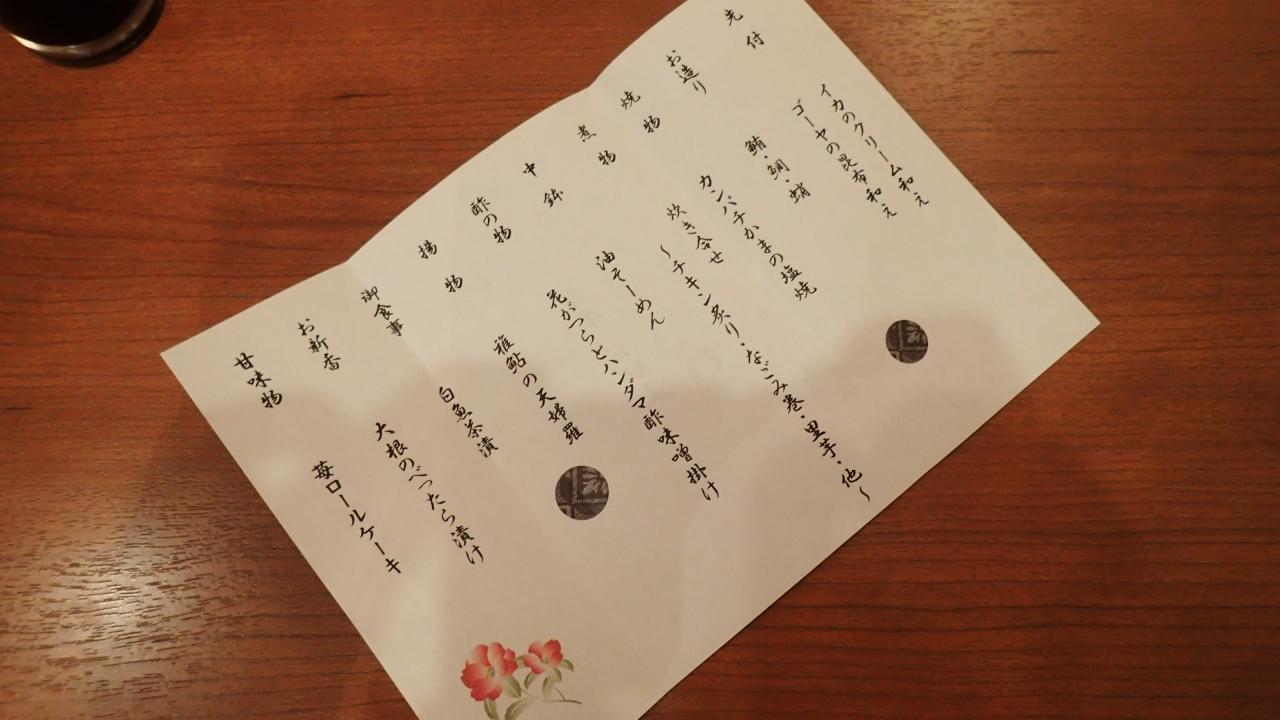 先付
イカのクリーム和え
ゴーヤの昆布和え
お造り
鮪・鯛・蛸
焼物
カンパチかまの塩焼
煮物
炊き合せ
～チキン炙り・なごみ巻・里芋・他～
中鉢
油そーめん
酢の物
花がつらとハンダマ酢味噌掛け
揚物
稚鮎の天婦羅
御食事
白魚茶漬
お新香
大根のべったら漬け
甘味物
苺ロールケーキ